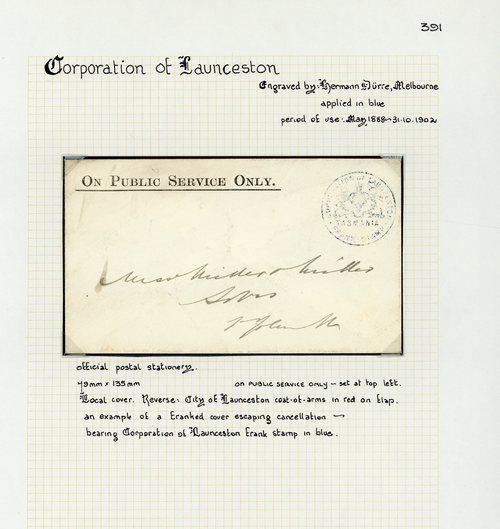 391
Corporation of Launceston
Engraved by: Hermann Dürre, Melbourne
applied in blue
period of use: May 1888–31.10.1902
ON PUBLIC SERVICE ONLY.
CORPORATION OF LAUNCESTON
TASMANIA
FRANK STAMP
Messrs Miller & Miller
St John St
official postal stationery.
79mm x 135mm on PUBLIC SERVICE ONLY – set at top left.
Local cover. Reverse: City of Launceston coat-of-arms in red on flap.
an example of a franked cover escaping cancellation –
bearing Corporation of Launceston frank stamp in blue.